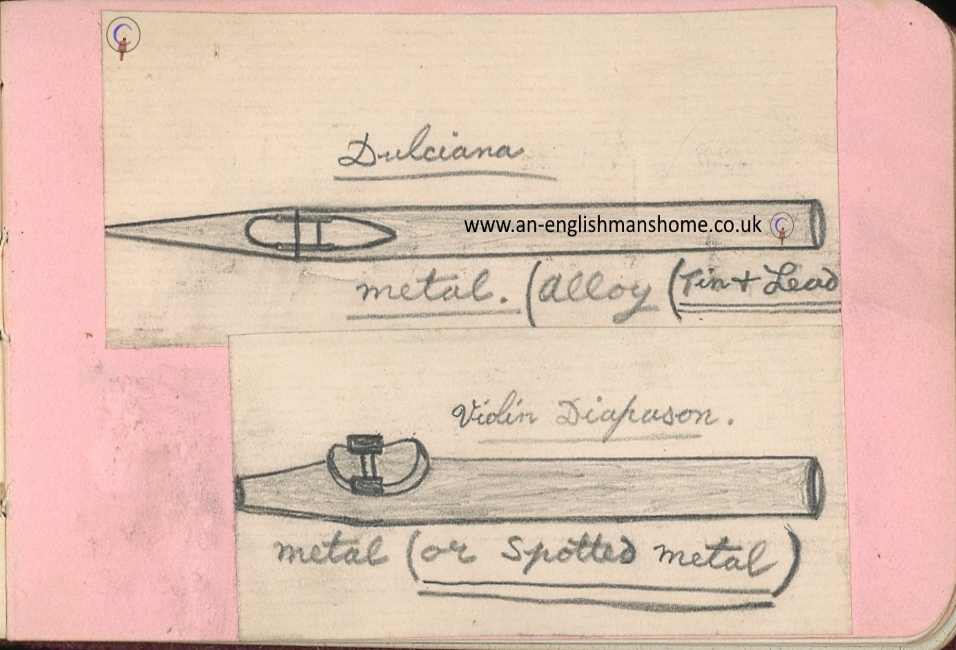 Dulciana
www.an-englishmanshome.co.uk
metal. (Alloy (Tin + Lead
Violin Diapason.
metal (or Spotted metal)